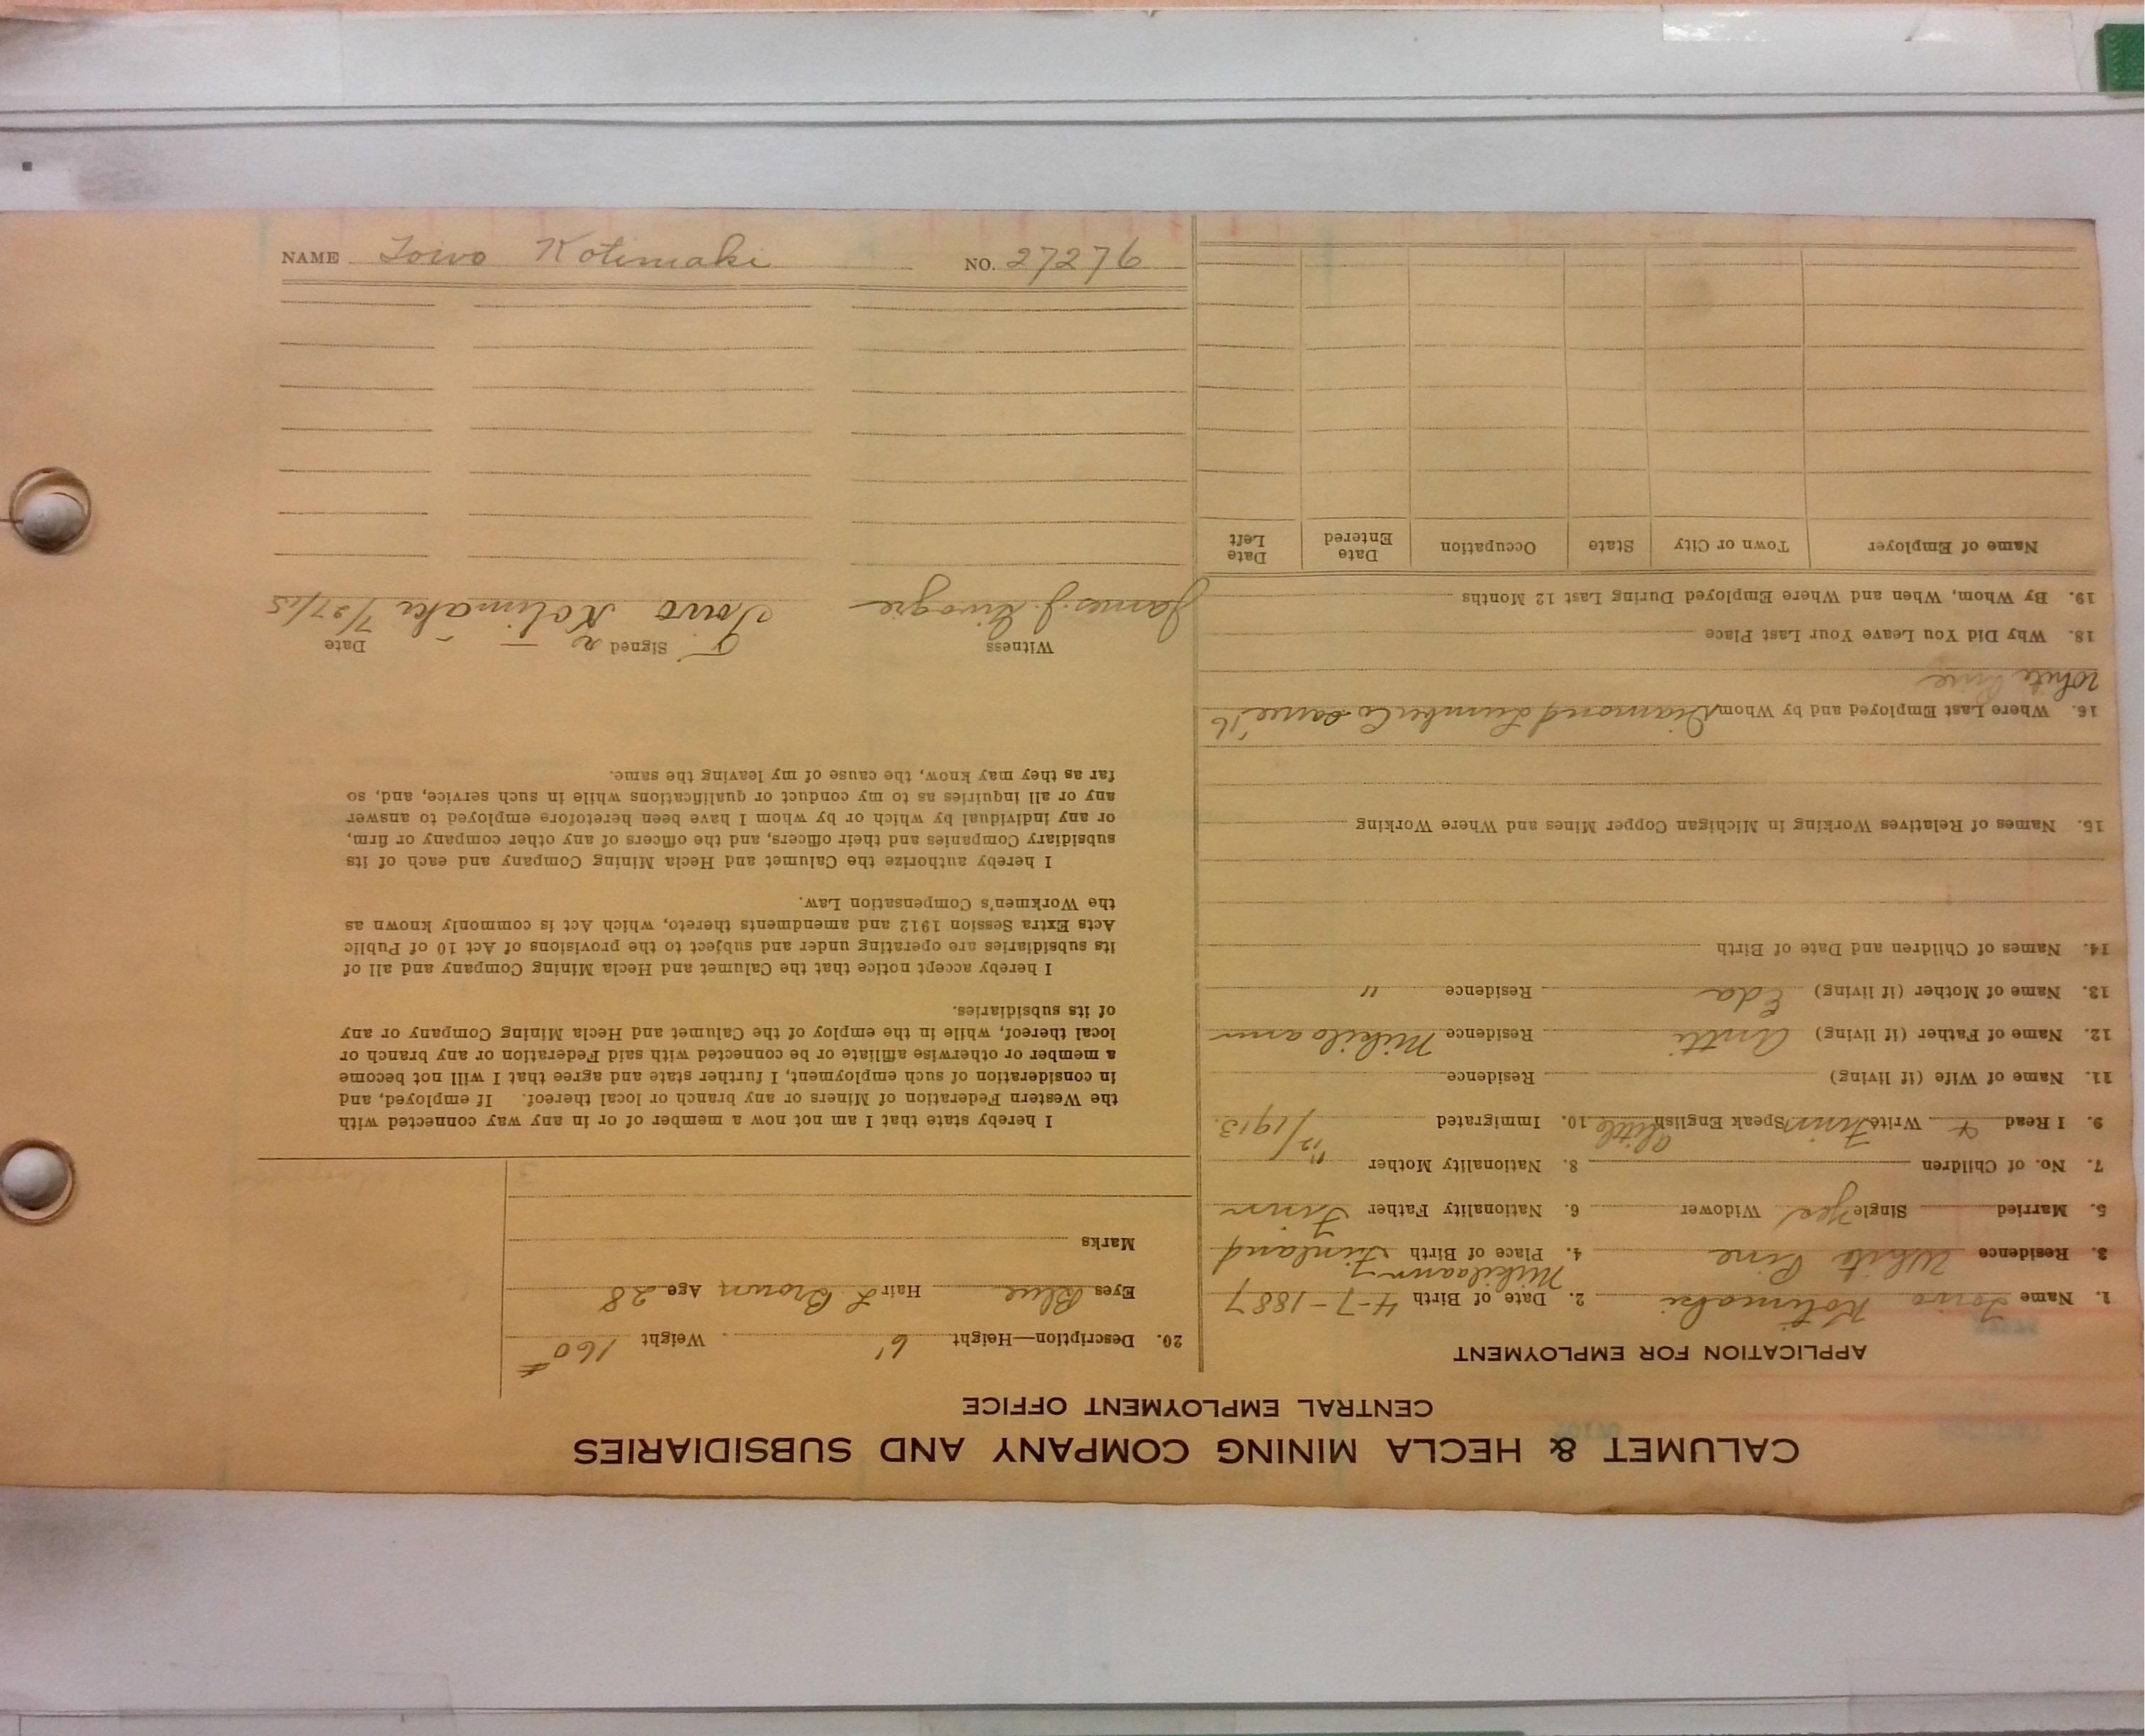 CALUMET & HECLA MINING COMPANY AND SUBSIDIARIES
CENTRAL EMPLOYMENT OFFICE
APPLICATION FOR EMPLOYMENT
1. Name Toivo Kotimaki 2. Date of Birth 4-7-1887
3. Residence White Pine 4. Place of Birth Finland
5. Married Single Yes Widower 6. Nationality Father Finn
7. No. of Children 8. Nationality Mother "
9. I Read & Write Finn Speak English a little 10. Immigrated 12/1913.
11. Name of Wife (if living) Residence
12. Name of Father (if living) Antti Residence
13. Name of Mother (if living) Eda Residence "
14. Names of Children and Date of Birth
15. Names of Relatives Working in Michigan Copper Mines and Where Working
16. Where Last Employed and by Whom Diamond Lumber Co
White Pine
18. Why Did You Leave Your Last Place
19. By Whom, When and Where Employed During Last 12 Months
Name of Employer Town or City State Occupation Date Entered Date Left
20. Description—Height 6' Weight 160#
Eyes Blue Hair L Brown Age 28
Marks
I hereby state that I am not now a member of or in any way connected with
the Western Federation of Miners or any branch or local thereof. If employed, and
in consideration of such employment, I further state and agree that I will not become
a member or otherwise affiliate or be connected with said Federation or any branch or
local thereof, while in the employ of the Calumet and Hecla Mining Company or any
of its subsidiaries.
I hereby accept notice that the Calumet and Hecla Mining Company and all of
its subsidiaries are operating under and subject to the provisions of Act 10 of Public
Acts Extra Session 1912 and amendments thereto, which Act is commonly known as
the Workmen's Compensation Law.
I hereby authorize the Calumet and Hecla Mining Company and each of its
subsidiary Companies and their officers, and the officers of any other company or firm,
or any individual by which or by whom I have been heretofore employed to answer
any or all inquiries as to my conduct or qualifications while in such service, and, so
far as they may know, the cause of my leaving the same.
Witness Signed Date
James J. Toivo Kotimaki 7/27/15
NAME Toivo Kotimaki NO. 27276